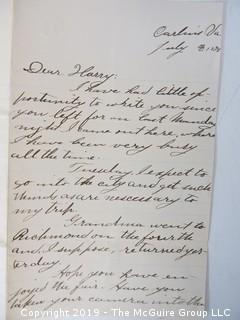 Carlins Va
July
Dear Harry:
I have had little op
portunity to write you since
you left for on last Sunday
night I came out here, where
I have been very busy
all the time.
Tuesday I expect to
go into the city and get such
things as are necessary to
my trip.
Grandma went to
Richmond on the fourth
and, I suppose, returned yes-
terday.
Hope you have en-
joyed the fair. Have you
taken your camera into the
Copyright 2019 - The McGuire Group LLC